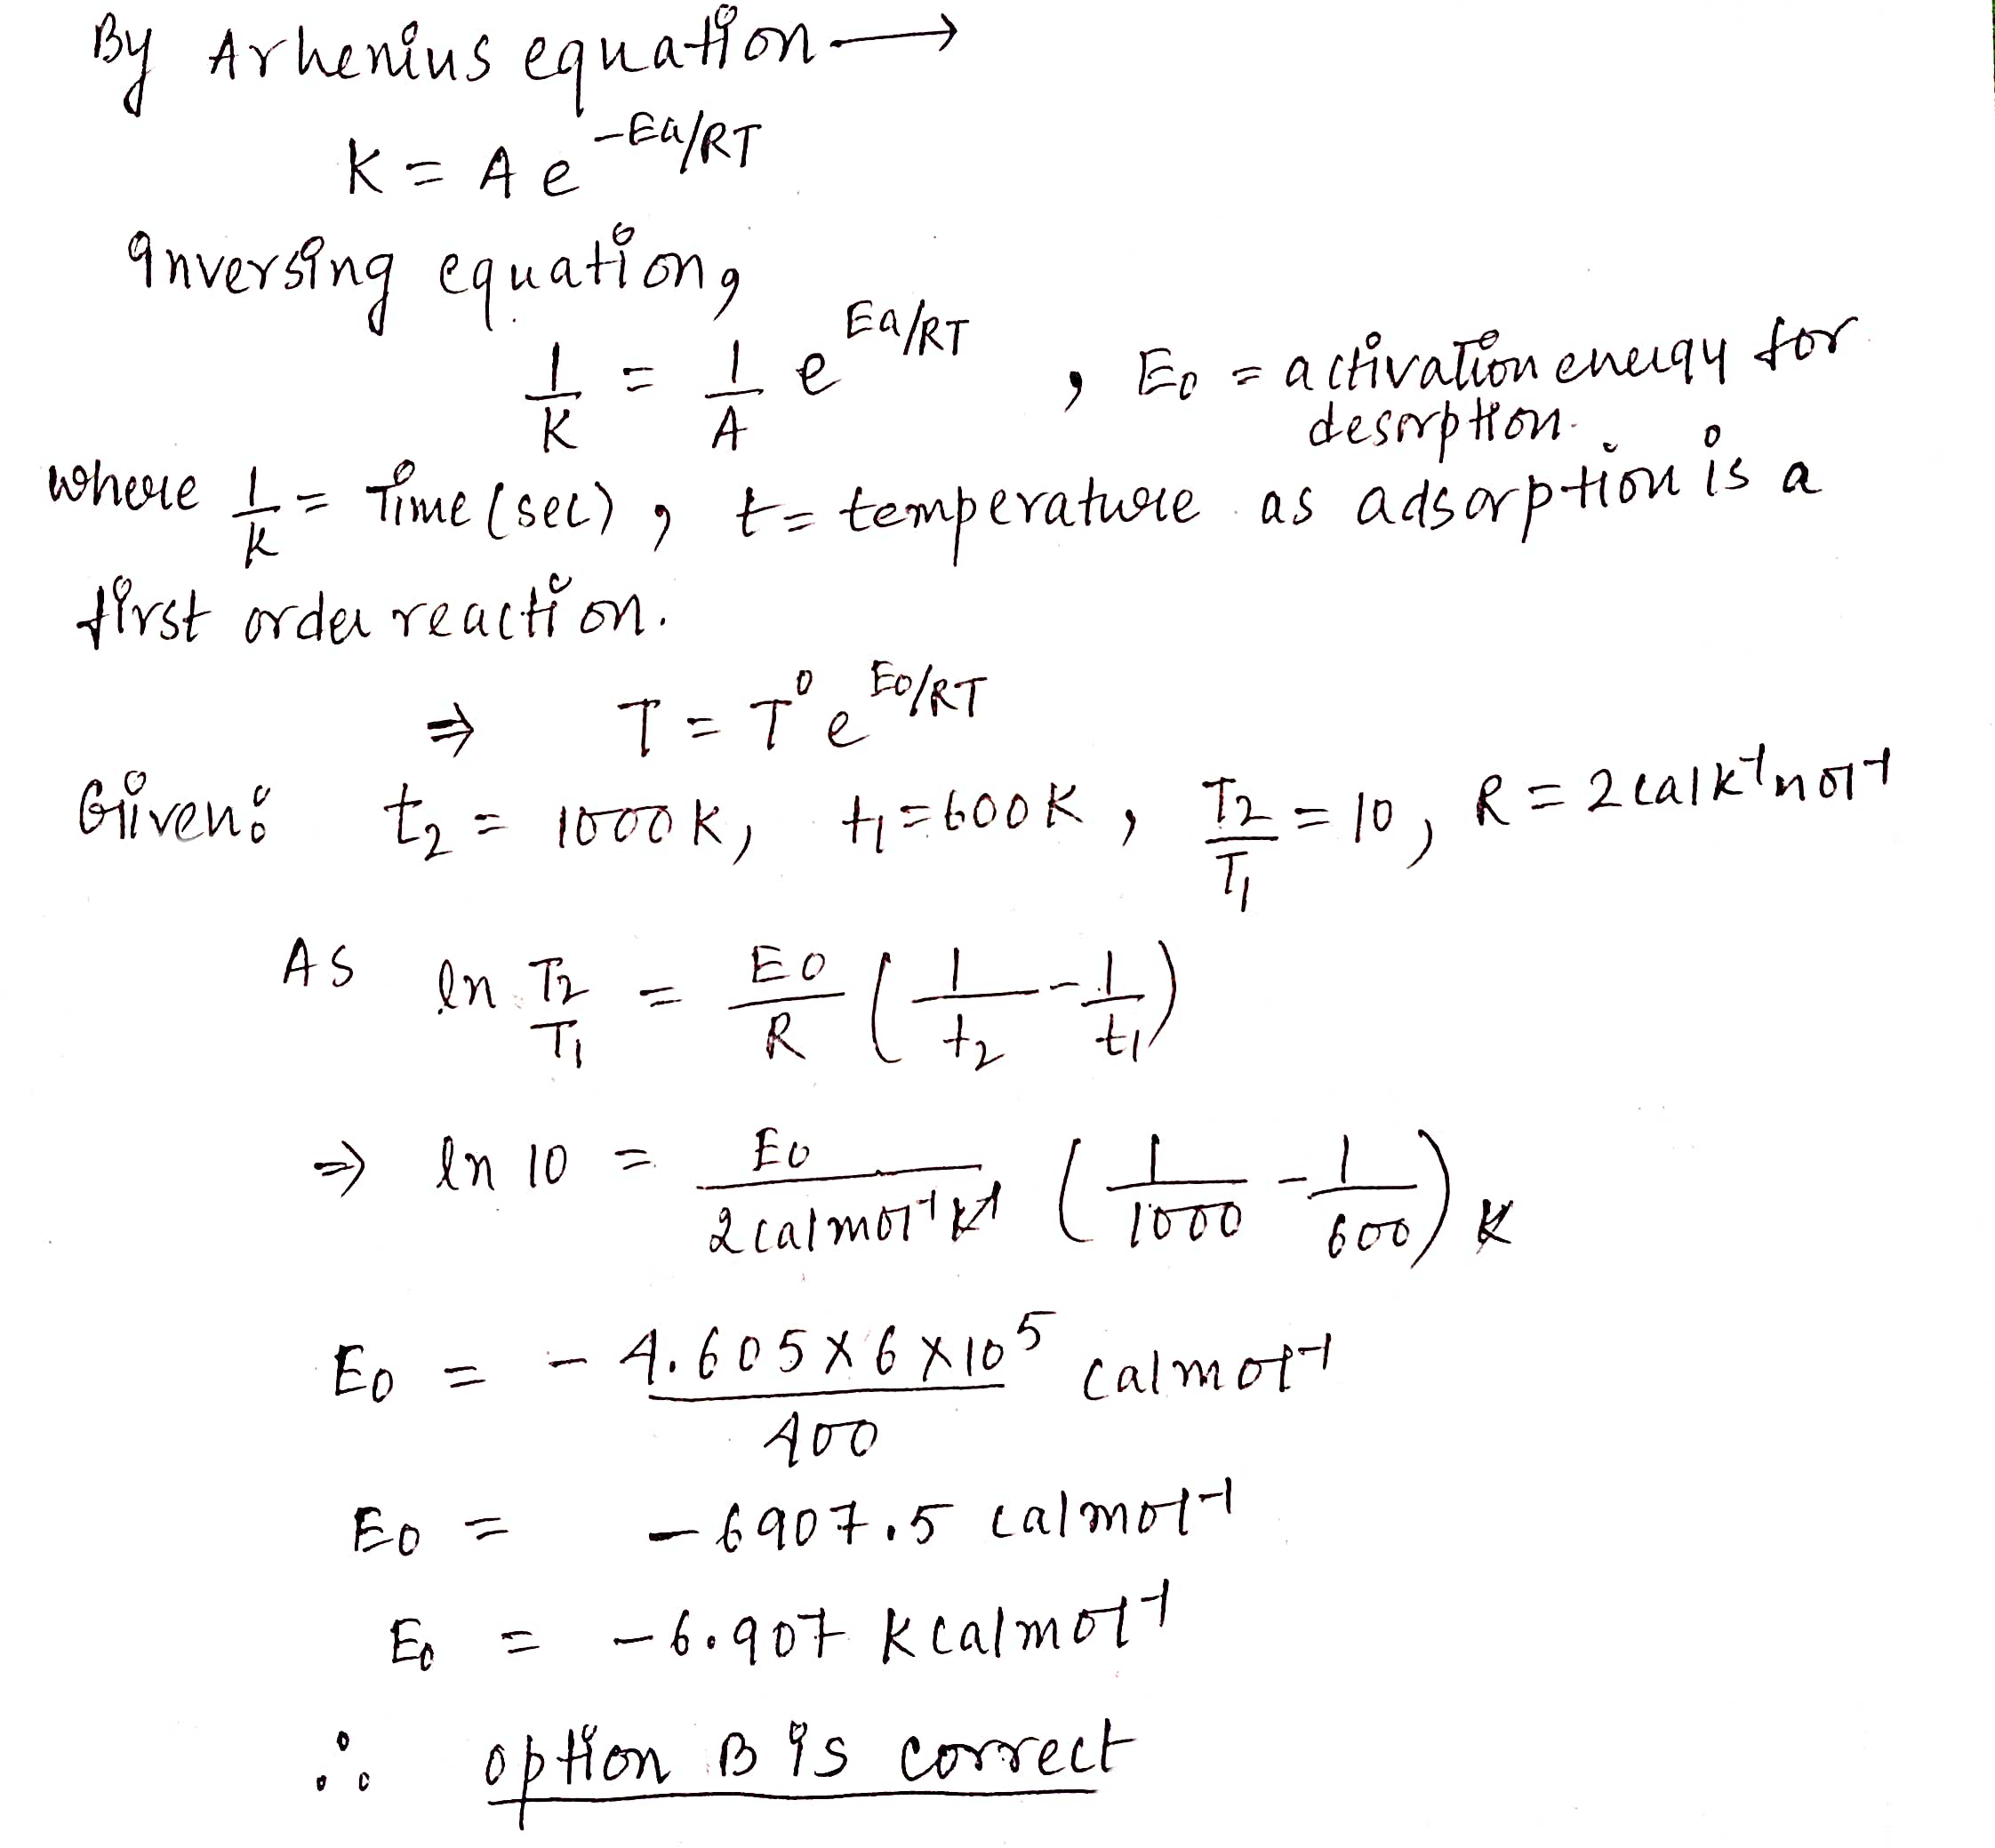 By Arhenius equation →
K = A e^-Ea/RT
Inversing equation,
1/K = 1/A e^Ea/RT , E0 = activation energy for
desorption.
where 1/k = Time (sec) , t = temperature as adsorption is a
first order reaction.
⇒ T = T° e^E0/RT
Given: t2 = 1000K, t1 = 600K , T2/T1 = 10, R = 2 cal K^-1 mol^-1
AS ln T2/T1 = E0/R (1/t2 - 1/t1)
⇒ ln 10 = E0/2 cal mol^-1 K^-1 (1/1000 - 1/600) K
E0 = - 4.605 X 6 X 10^5/400 cal mol^-1
E0 = - 6907.5 cal mol^-1
E0 = - 6.907 K cal mol^-1
∴ option B is correct